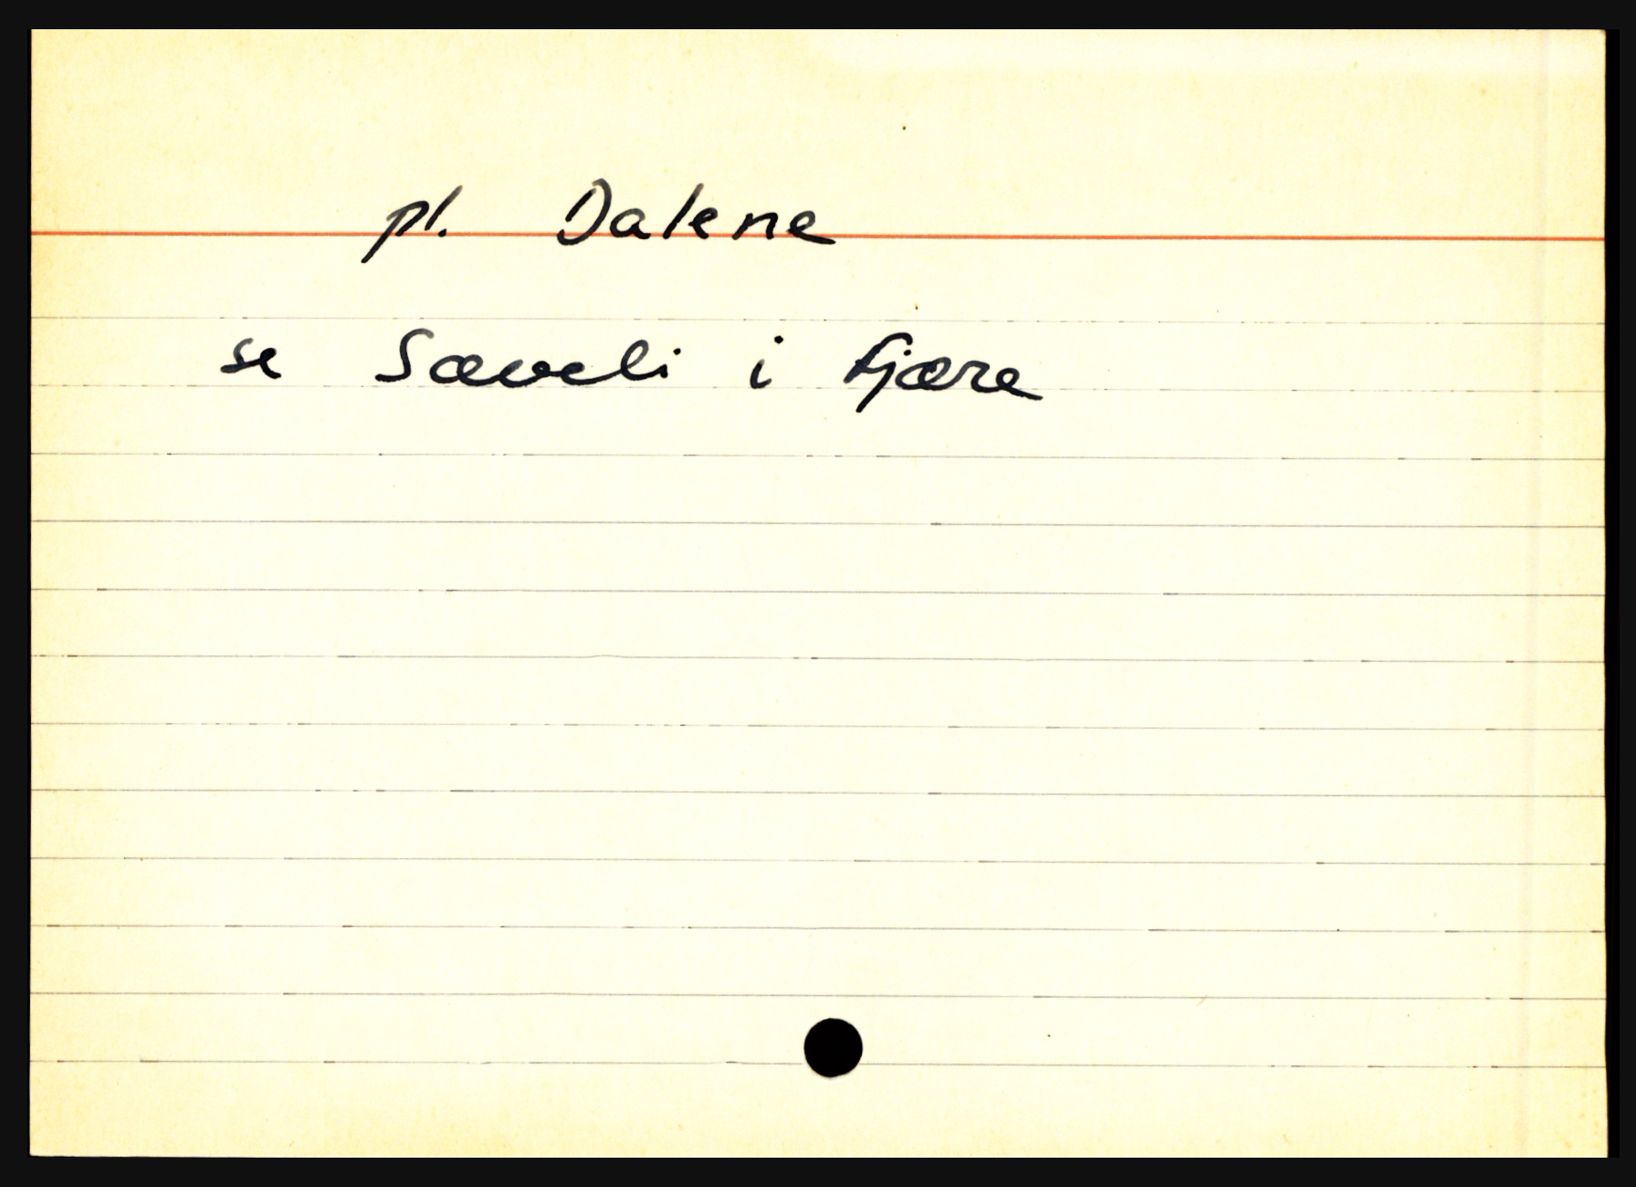 pl. Dalene
se Sæveli i Fjære